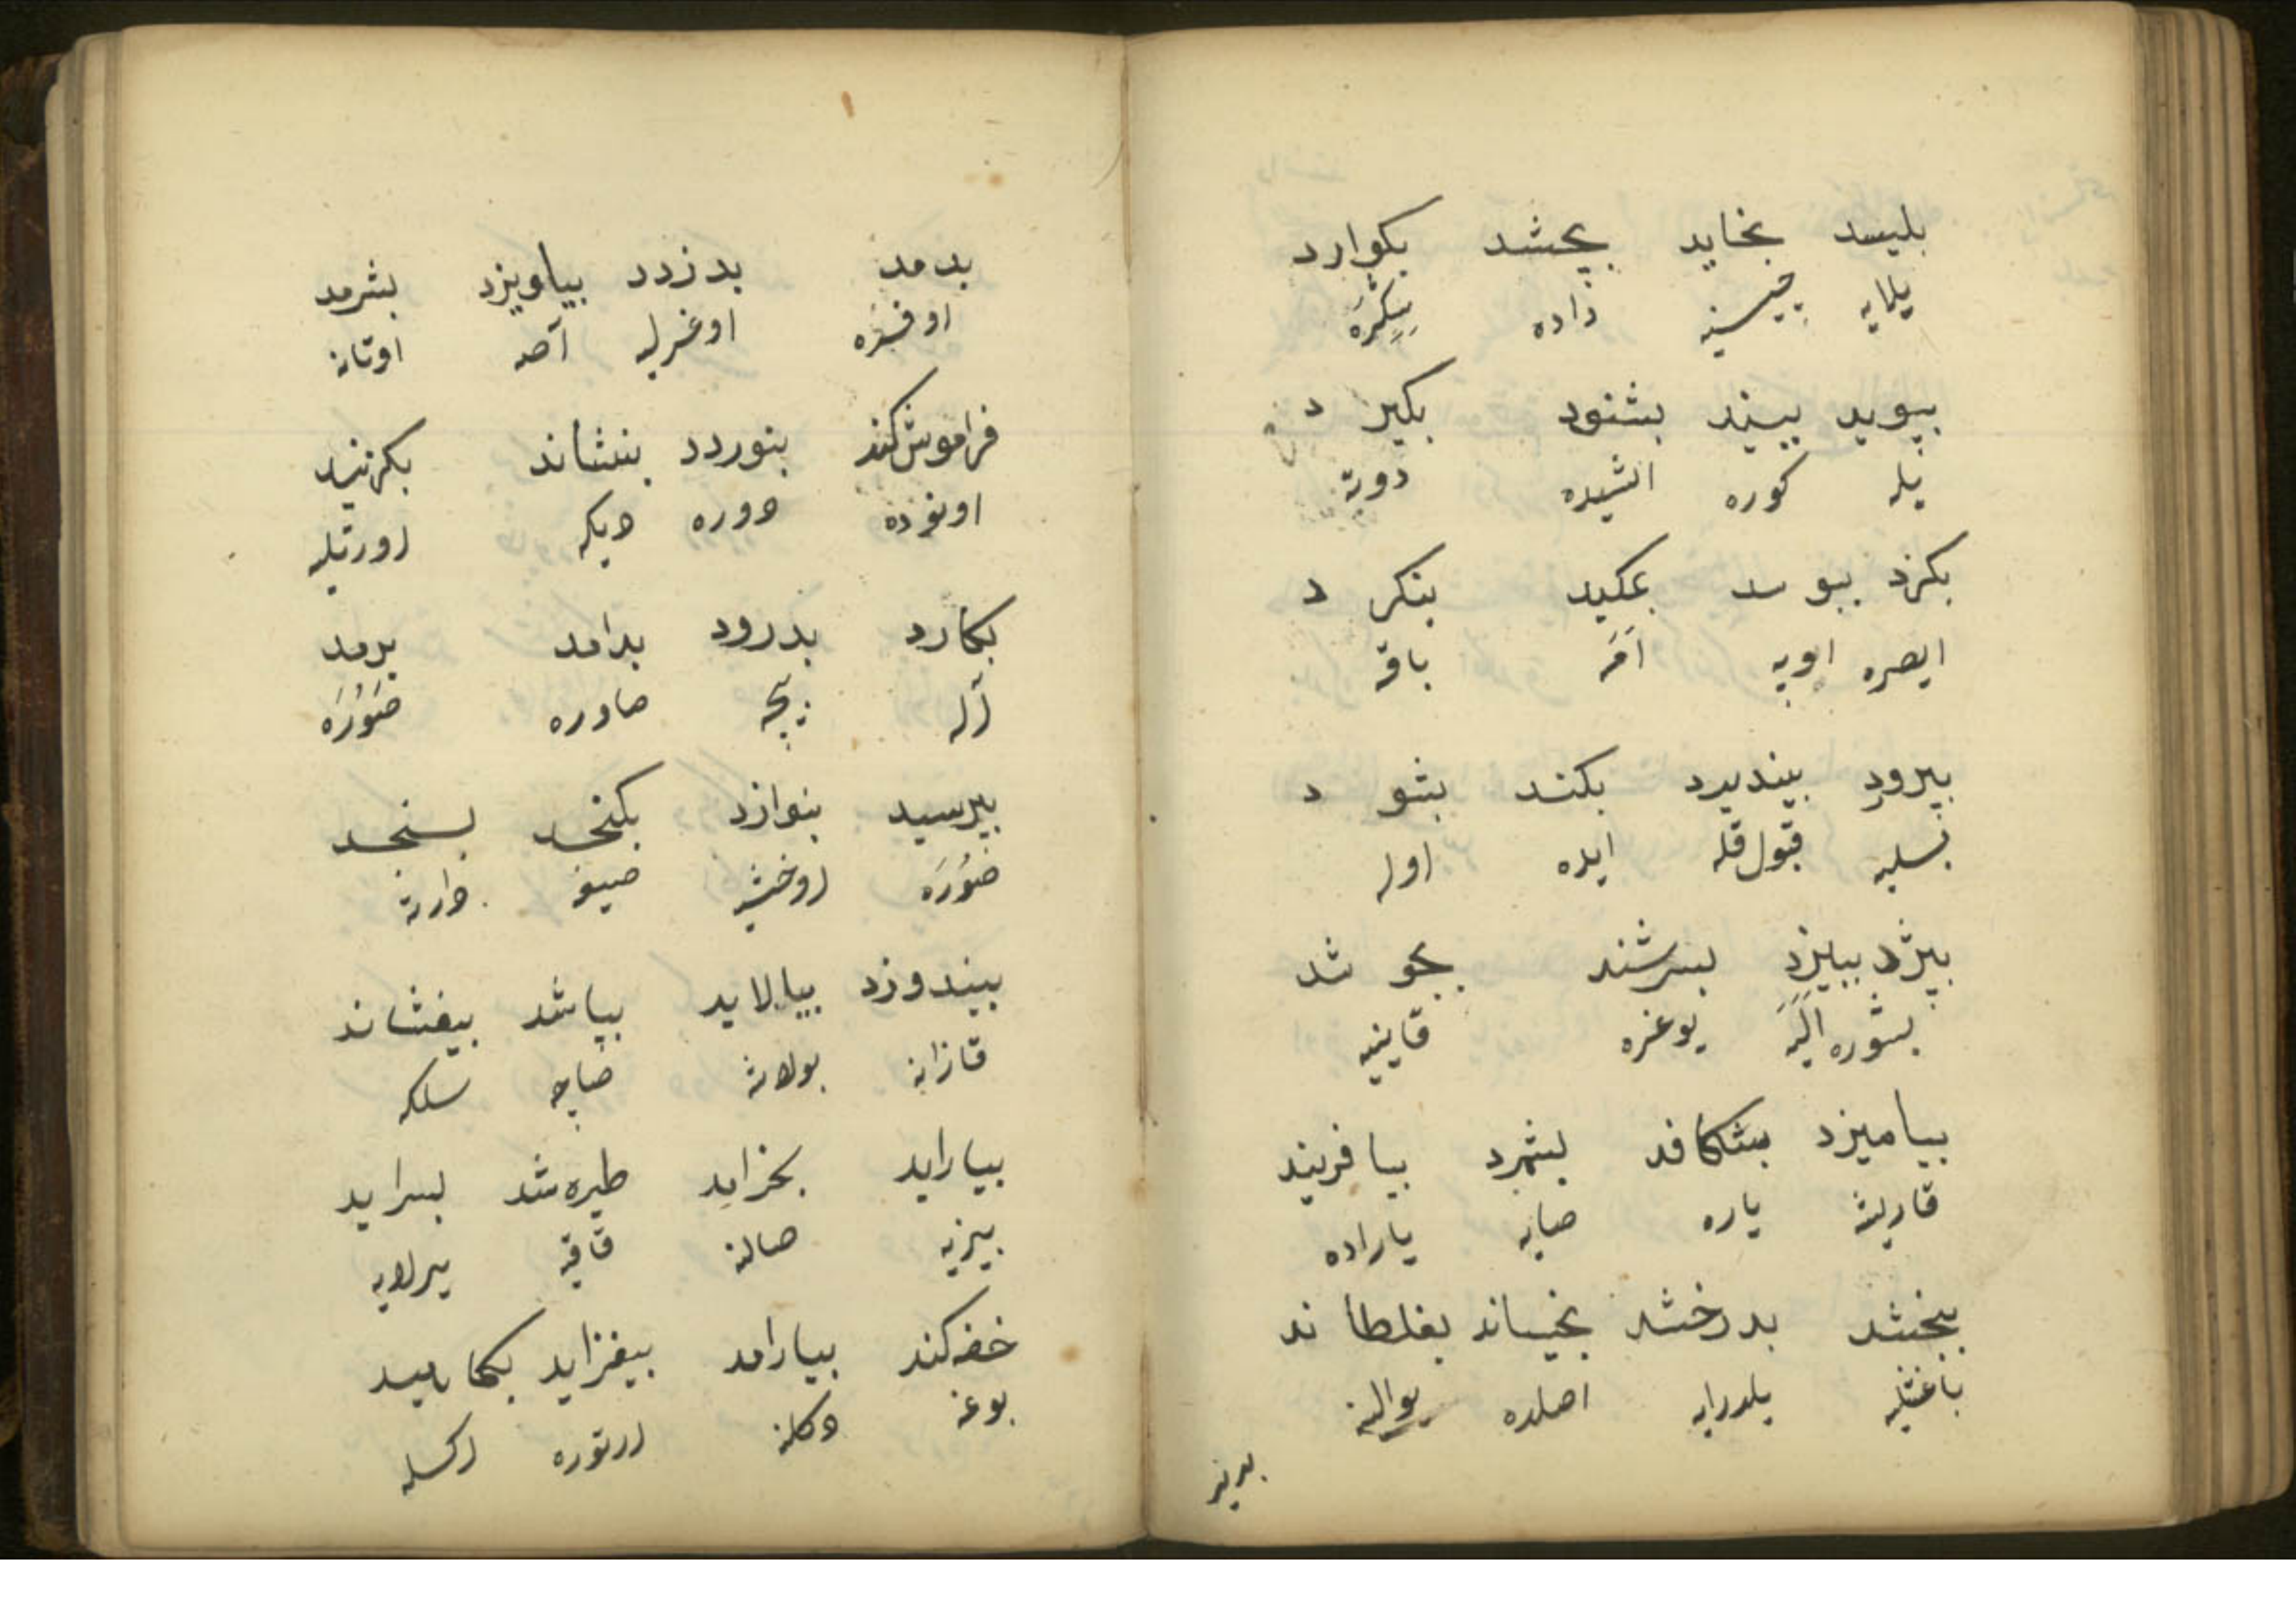 بلیسد بخاید بچشد بکوارد
یلایه چیسنیه داده سکره
ببوید ببیند بشنود بکیرد
یله کوره اشیده دوته
بکزد ببوسد بمکید بنکرد
ایصره اوپه امه باقه
بپرورد بپندیرد بکند بشود
بسلیه قبول قله ایده اوله
بپزد ببیزد بسرشند بجوشد
بشوره الیه یوغره قاینیه
بیامیزد بشکافد بشمرد بیافریند
قاریشه یاره صایه یاراده
ببخشد بدرخشد بخیساند بغلطاند
باغشلیه یلدرایه اصلده یوالنه
بدمد بدزدد بیاویزد بشرمد
اوفوره اوغرلیه آصه اوتانه
فراموش کند بنوردد بنشاند
اونوده دوره دیکه اورتیله
بکارد بدرود برامد برمد
اکه بیچه صاوره
بپرسید بنوازد بکنجد بسنجد
صوره اوخشیه صیغه طارته
بیندوزد بیالاید بپاشد بیفشاند
قازانه بولاشه صاچه سلکه
بیاراید بخراید طیره شد بسراید
بیزیه صالنه قاقیه یرلایه
خفه کند بیارامد بیفزاید بکاهید
بوغه دکلنه ارتوره اکسله